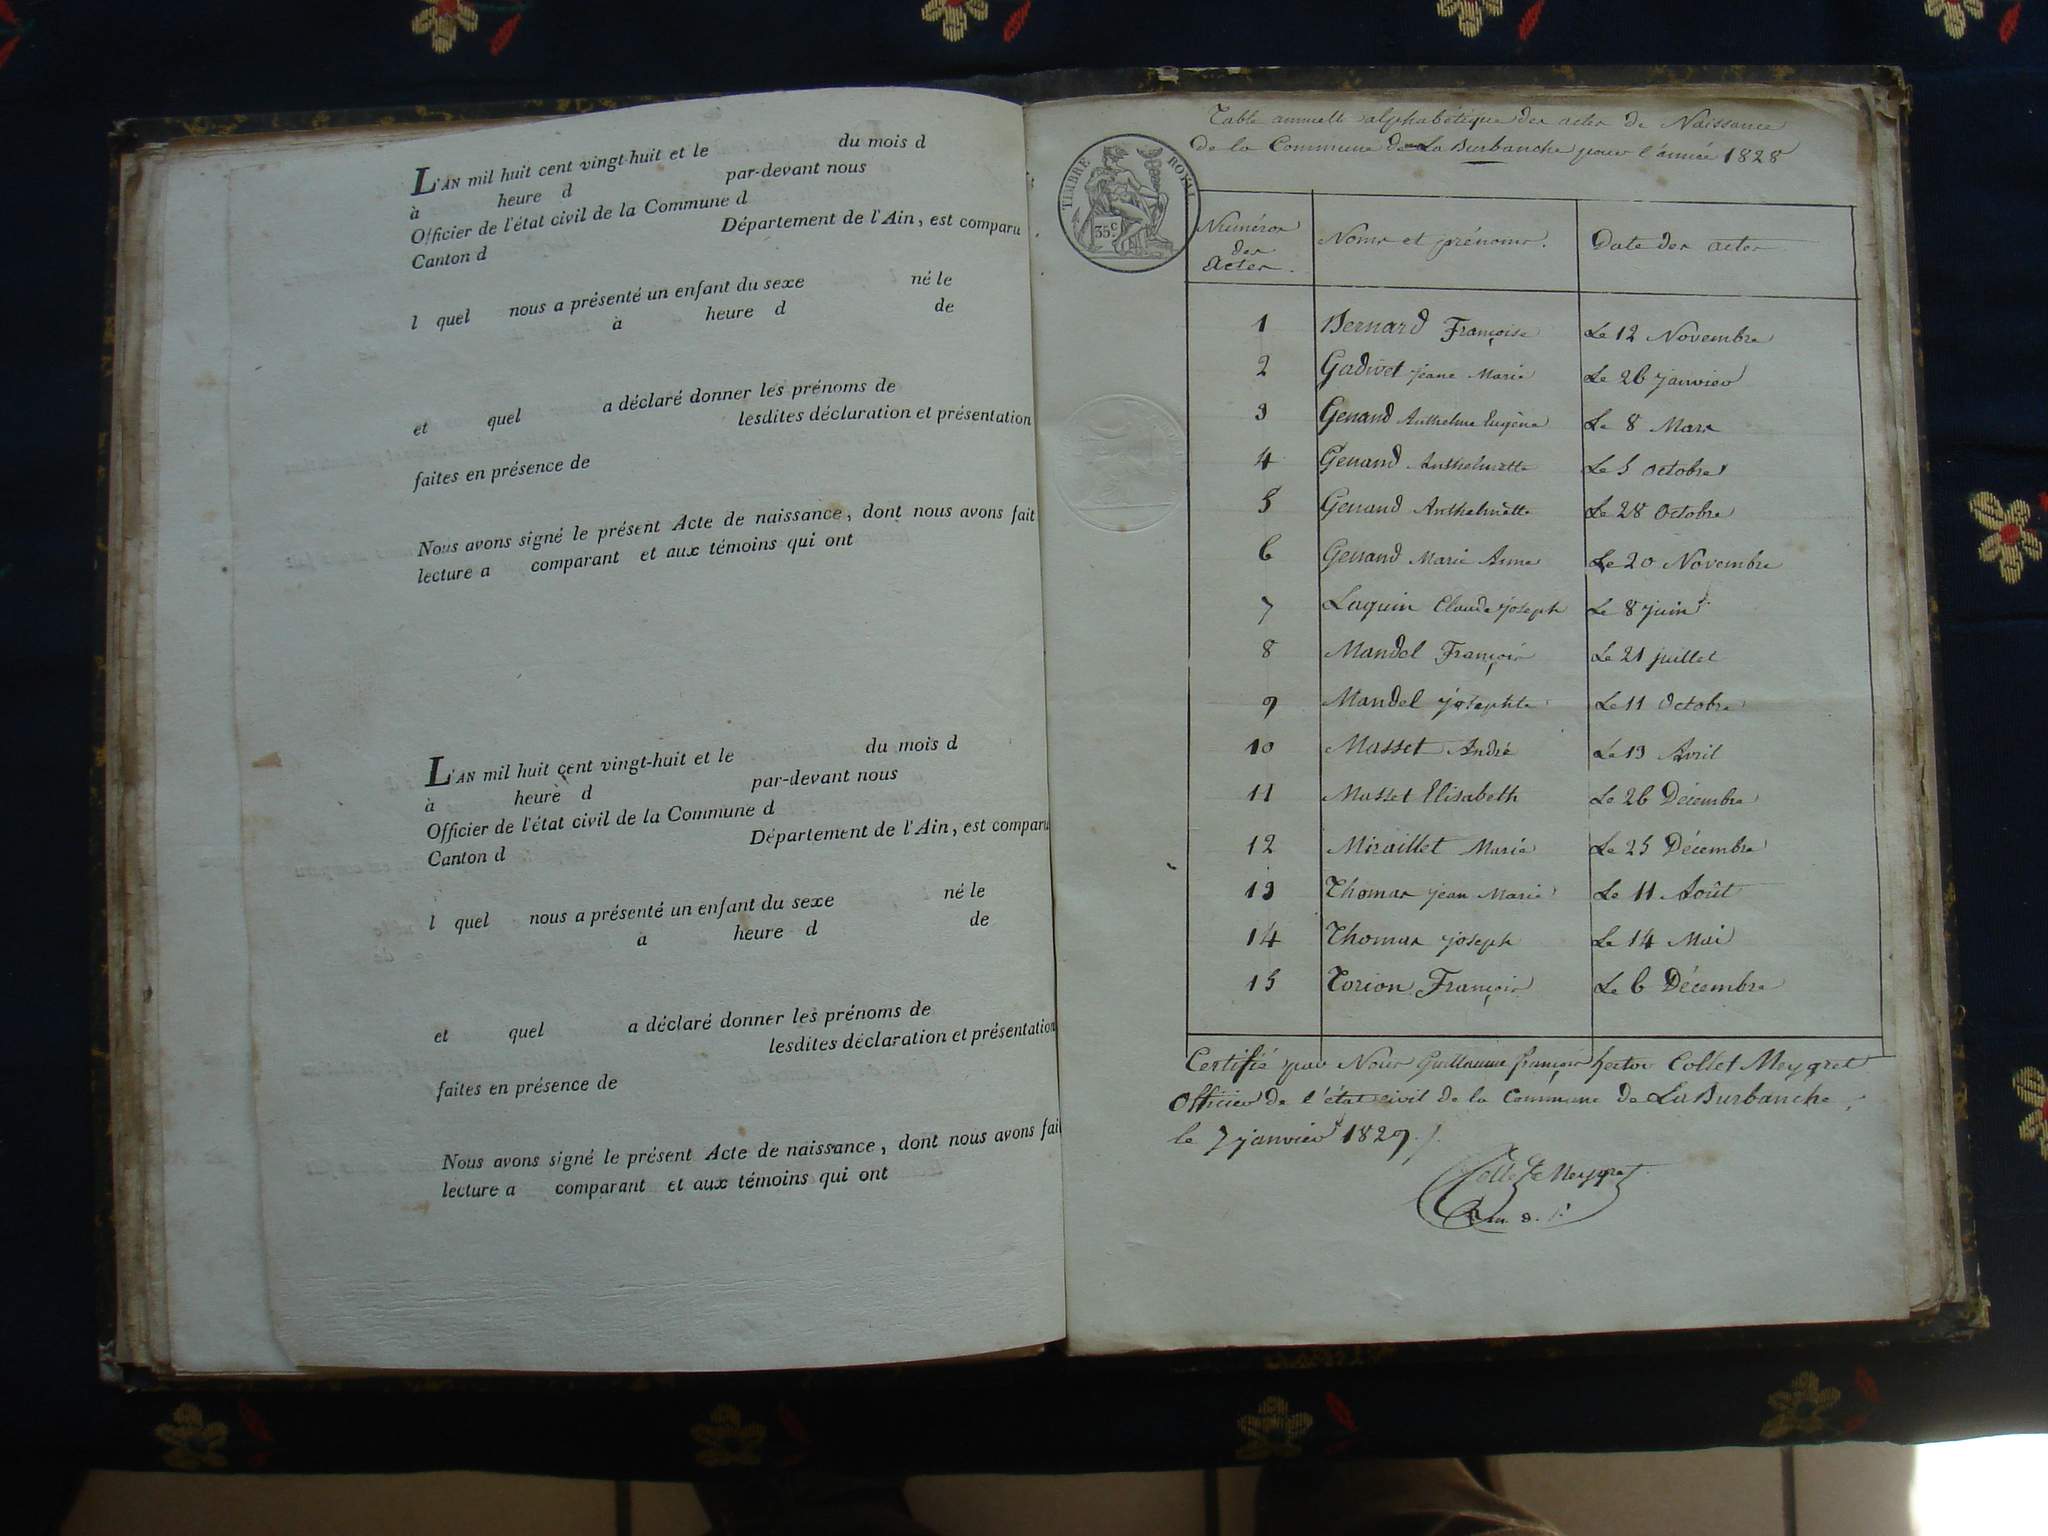 L'AN mil huit cent vingt-huit et le du mois d
à heure d par-devant nous
Officier de l'état civil de la Commune d
Canton d Département de l'Ain, est comparu
l quel nous a présenté un enfant du sexe né le
à heure d de
et quel a déclaré donner les prénoms de
lesdites déclaration et présentation
faites en présence de
Nous avons signé le présent Acte de naissance, dont nous avons fait
lecture a comparant et aux témoins qui ont
L'AN mil huit cent vingt-huit et le du mois d
à heure d par-devant nous
Officier de l'état civil de la Commune d
Canton d Département de l'Ain, est comparu
l quel nous a présenté un enfant du sexe né le
a heure d de
et quel a déclaré donner les prénoms de
lesdites déclaration et présentation
faites en présence de
Nous avons signé le présent Acte de naissance, dont nous avons fai
lecture a comparant et aux témoins qui ont
Table annuelle alphabétique des actes de Naissance
de la Commune de La Burbanche pour l'année 1828
TIMBRE ROYAL
35c
Numéros des Actes. Noms et prénoms. Date des actes
1 Bernard Françoise Le 12 Novembre
2 Gadivet jeane Marie Le 26 janvier
3 Genand Anthelme Eugène Le 8 Mars
4 Genand Anthelmette Le 5 octobre
5 Genand Anthelmette Le 28 Octobre
6 Genand Marie Anne Le 20 Novembre
7 Laquin Claude joseph Le 8 juin
8 Mandel François Le 21 juillet
9 Mandel josephte Le 11 Octobre
10 Masset André Le 13 Avril
11 Masset Elisabeth Le 26 Décembre
12 Miraillet Marie Le 25 Décembre
13 Thomas jean Marie Le 11 Août
14 Thomas joseph Le 14 Mai
15 Torion François Le 6 Décembre
Certifié par Nous Guillaume françois hector Collet Meygret
Officier de l'état civil de la Commune de La Burbanche,
le 7 janvier 1829.
Collet Meygret